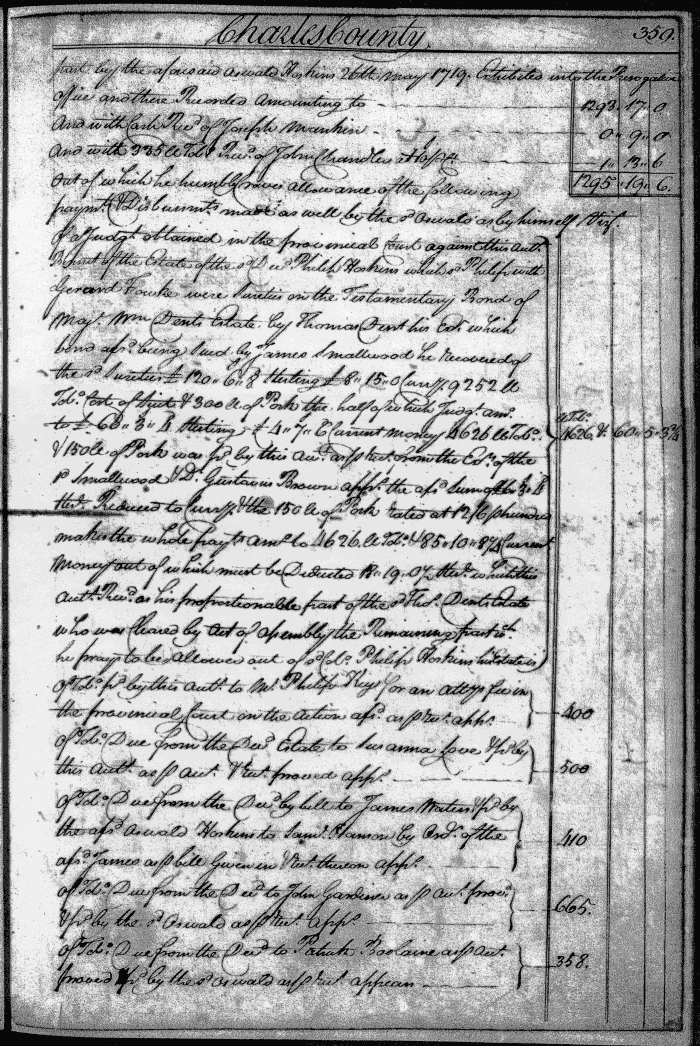 Charles County. 359.
part by the aforesaid Oswald Hoskins 26th May 1719. Exhibited into the Prerogative
office and there Recorded Amounting to 1293. 17. 0
And with Cash Recd of Joseph Mankin 0" 9" 0
And with 335 lb Tobo Recd of John Chandler at 10s/ 1" 13" 6
Out of which he humbly craves allowance of the following 1295" 19" 6.
paymts & Disbursmts made as well by the sd Oswald as by himself Vizt.
Of a Judgt obtained in the provincial Court against this Acct
of the Estate of the sd Decd Philip Hoskins which sd Philip with
Gerard Fowke were Sureties on the Testamentary Bond of
Majr. Wm Dents Estate by Thomas Dent his Exr. which
bond afsd being Sued by James Smallwood he Recovered of
the sd Sureties £ 120" 6" 8 Sterling £ 8" 15" 0 Curry 9252 lb
Tobo. Cost of Suit & 300 lb of Pork the half of which Judgt amt.
to £ 60" 3" 4 Sterling £ 4" 7" 6 Current money 4626 lb Tobo.
& 150 lb of Pork was pd by this Acct as p Rect from the Exrs of the
sd Smallwood & Dr. Gustavus Brown apprs. the afsd Sum of 60" 3" 4
Sterl. Reduced to Curry & the 150 lb of Pork rated at 12/6 p hundred
makes the whole paymt amt to 4626 lb Tobo. & 85" 10" 8¾ Current
Money out of which must be Deducted 18" 19" 0½ Sterl. which this
Acct Recd as his proportionable part of the sd Thos. Dents Estate
who was Cleared by Act of Assembly the Remaining part wch.
he prays to be allowed out of sd Col. Philip Hoskins his Estate is
lb Tobo. 4626. & 60" 5" 3¾
Of Tobo. pd by this Acct. to Mr. Philip Key for an attys fee in
the provincial Court on the action afsd. as p Rect. apprs. 400
Of Tobo. Due from the Decd Estate to Susanna Love & pd by
this Acct. as p Acct. & Rect. proved appr. 500
Of Tobo. Due from the Decd by bill to James Waters & pd by
the afsd Oswald Hoskins to Saml. Hanson by Ordr. of the
afsd James as p bill Given in & Rect. thereon appr. 410
Of Tobo. Due from the Decd to John Gardiner as p Acct. proved
& pd by the sd Oswald as p Rect. appr. 665.
Of Tobo. Due from the Decd to Patrick as p Acct.
proved & pd by the sd Oswald as p Rect. appears 358.